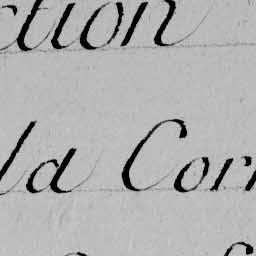 ction
la Corr